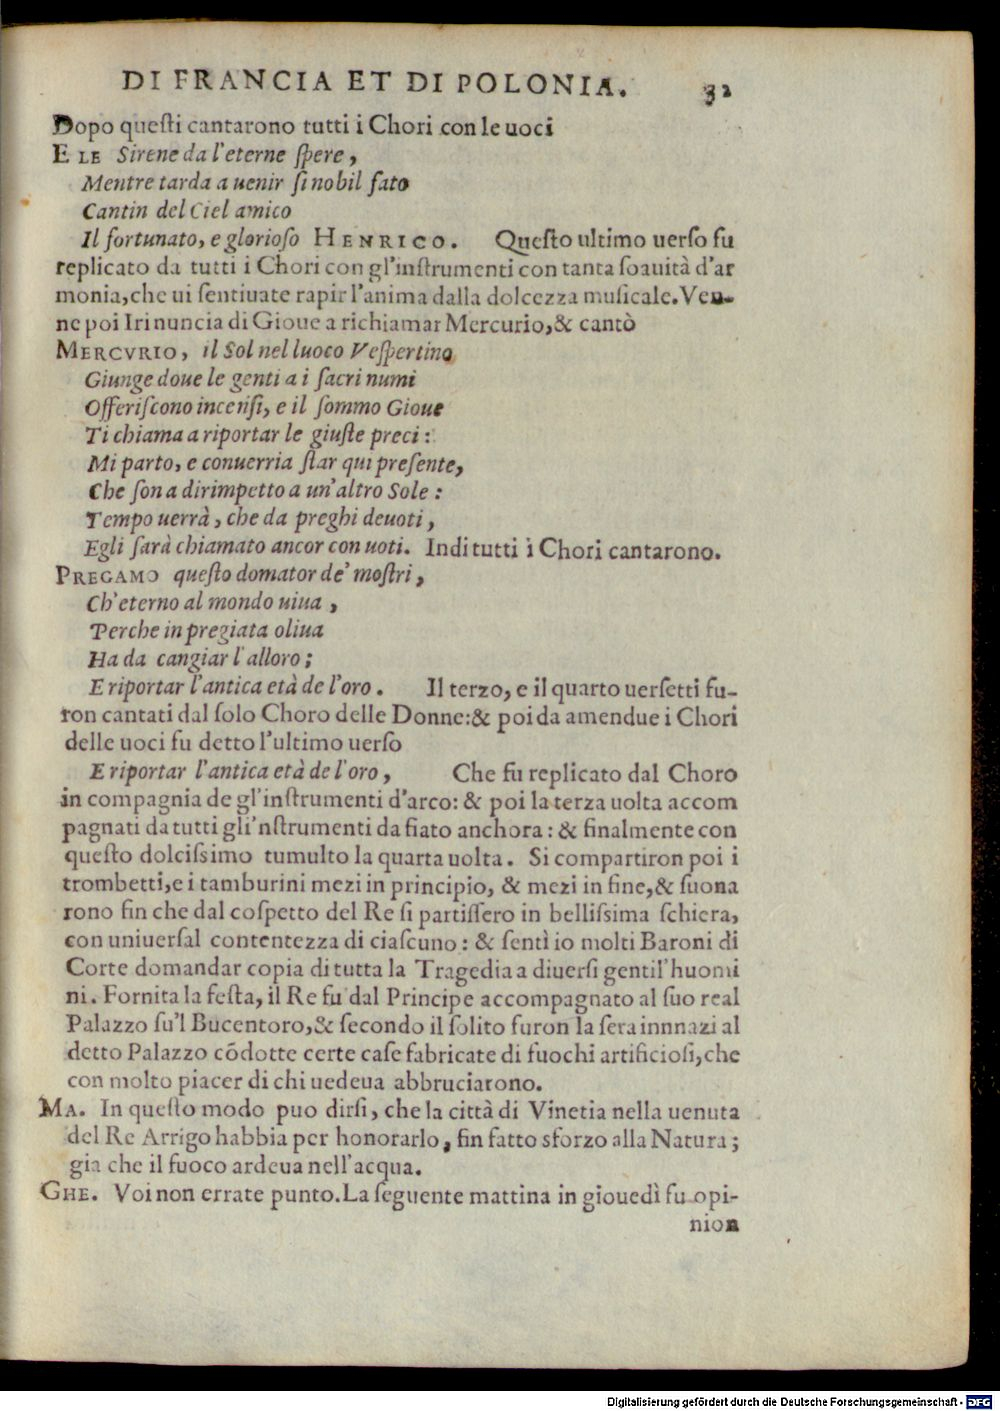 DI FRANCIA ET DI POLONIA. 32
Dopo queſti cantarono tutti i Chori con le uoci
E LE Sirene da l'eterne ſpere,
Mentre tarda a uenir ſi nobil fato
Cantin del Ciel amico
Il fortunato, e glorioſo HENRICO. Queſto ultimo uerſo fu
replicato da tutti i Chori con gl'inſtrumenti con tanta ſoauità d'ar
monia, che ui ſentiuate rapir l'anima dalla dolcezza muſicale. Ven-
ne poi Iri nuncia di Gioue a richiamar Mercurio, & cantò
MERCVRIO, il Sol nel luoco Veſpertino
Giunge doue le genti a i ſacri numi
Offeriſcono incenſi, e il ſommo Gioue
Ti chiama a riportar le giuſte preci:
Mi parto, e conuerria ſtar qui preſente,
Che ſon a dirimpetto a un'altro Sole:
Tempo uerrà, che da preghi deuoti,
Egli ſarà chiamato ancor con uoti. Indi tutti i Chori cantarono.
PREGAMO queſto domator de' moſtri,
Ch'eterno al mondo uiua,
Perche in pregiata oliua
Ha da cangiar l'alloro;
E riportar l'antica età de l'oro. Il terzo, e il quarto uerſetti fu-
ron cantati dal ſolo Choro delle Donne: & poi da amendue i Chori
delle uoci fu detto l'ultimo uerſo
E riportar l'antica età de l'oro, Che fu replicato dal Choro
in compagnia de gl'inſtrumenti d'arco: & poi la terza uolta accom
pagnati da tutti gli'nſtrumenti da fiato anchora: & finalmente con
queſto dolciſsimo tumulto la quarta uolta. Si compartiron poi i
trombetti, e i tamburini mezi in principio, & mezi in fine, & ſuona
rono fin che dal coſpetto del Re ſi partiſſero in belliſsima ſchiera,
con uniuerſal contentezza di ciaſcuno: & ſentì io molti Baroni di
Corte domandar copia di tutta la Tragedia a diuerſi gentil'huomi
ni. Fornita la feſta, il Re fu dal Principe accompagnato al ſuo real
Palazzo ſu'l Bucentoro, & ſecondo il ſolito furon la ſera innnazi al
detto Palazzo cõdotte certe caſe fabricate di fuochi artificioſi, che
con molto piacer di chi uedeua abbruciarono.
MA. In queſto modo puo dirſi, che la città di Vinetia nella uenuta
del Re Arrigo habbia per honorarlo, fin fatto sforzo alla Natura;
gia che il fuoco ardeua nell'acqua.
GHE. Voi non errate punto. La ſeguente mattina in giouedì fu opi-
nion
Digitalisierung gefördert durch die Deutsche Forschungsgemeinschaft - DFG